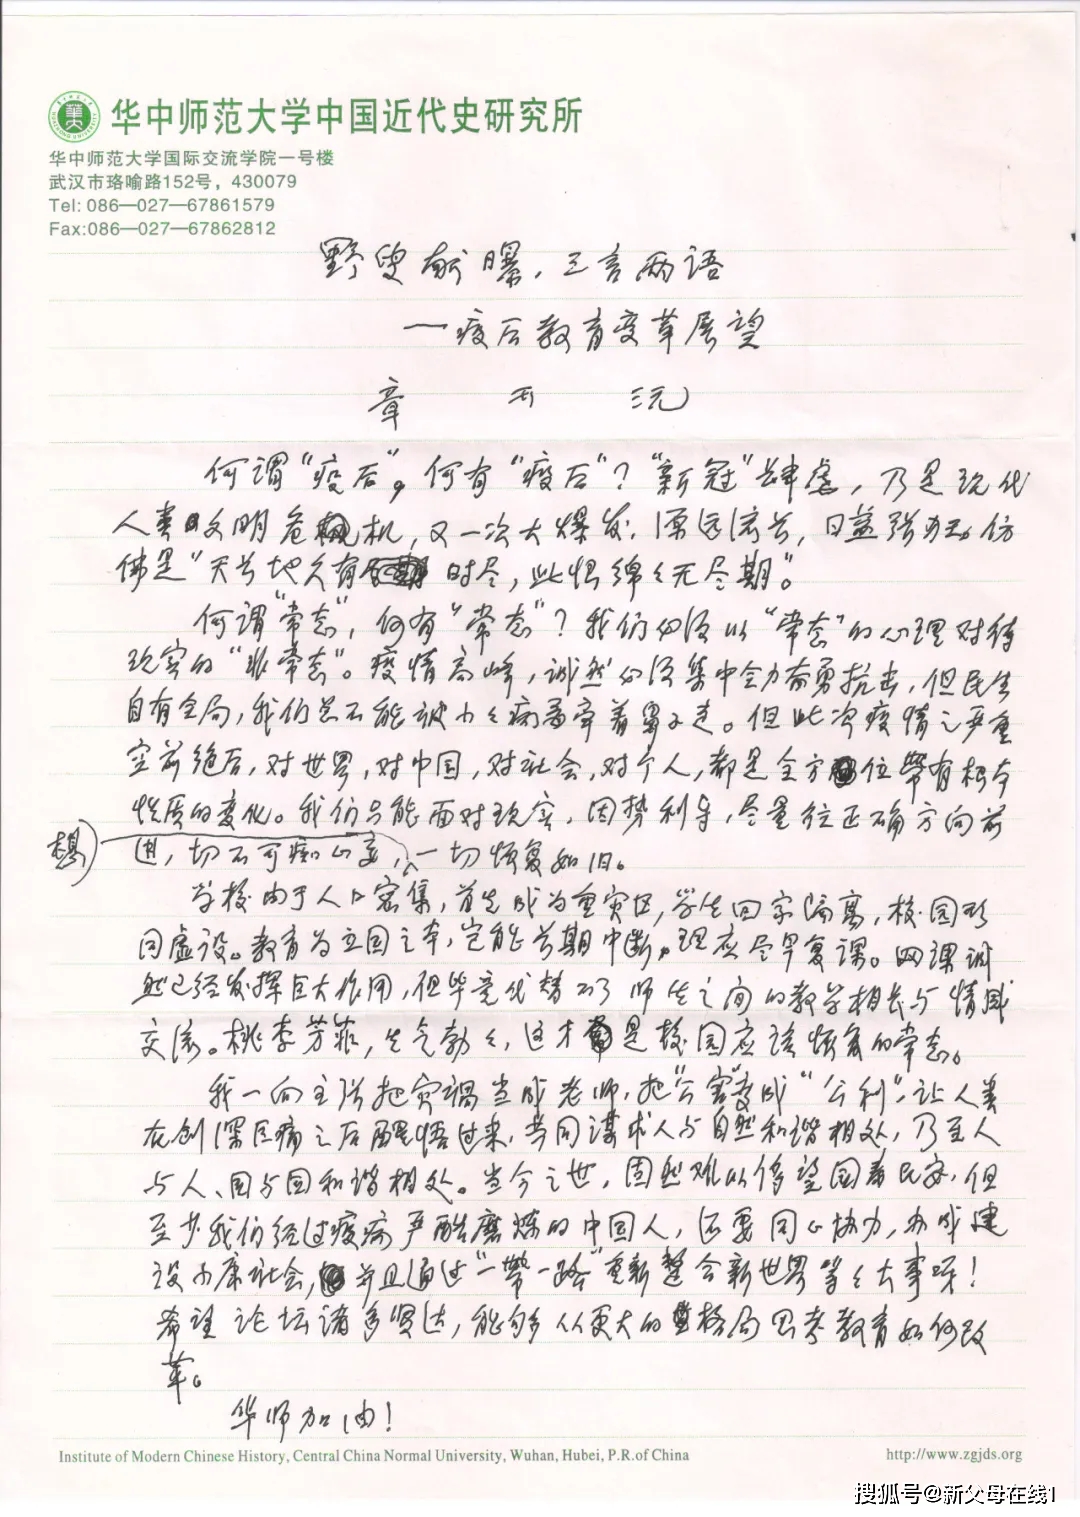 华中师范大学中国近代史研究所
华中师范大学国际交流学院一号楼
武汉市珞喻路152号，430079
Tel: 086—027—67861579
Fax:086—027—67862812
野叟献曝，三言两语
—疫后教育变革展望
章开沅
何谓“疫后”，何有“疫后”？“新冠”肆虐，乃是现代
人类文明危机，又一次大爆发，源远流长，日益强烈，仿
佛是“天长地久有时尽，此恨绵々无尽期”。
何谓“常态”，何有“常态”？我们必须以“常态”的心理对待
现实的“非常态”。疫情高峰，诚然必须集中全力奋勇抗击，但民生
自有全局，我们总不能被小々病毒牵着鼻子走。但此次疫情之严重
空前绝后，对世界，对中国，对社会，对个人，都是全方位带有根本
性质的变化。我们只能面对现实，因势利导，尽量往正确方向前
进，切不可痴心妄想，一切恢复如旧。
学校由于人口密集，首先成为重灾区，学生回家隔离，校园形
同虚设。教育为立国之本，岂能长期中断，理应尽早复课。网课诚
然已经发挥巨大作用，但毕竟代替不了师生之间的教学相长与情感
交流。桃李芳菲，生气勃々，这才是校园应该恢复的常态。
我一向主张把灾祸当成老师，把“公害”变成“公利”，让人类
在创深巨痛之后醒悟过来，共同谋求人与自然和谐相处，乃至人
与人、国与国和谐相处。当今之世，固然难以侈望国泰民安，但
至少我们经过疫病严酷磨炼的中国人，还要同心协力，办成建
设小康社会，并且通过“一带一路”重新整合新世界等々大事呀！
希望论坛诸多贤达，能够从更大的格局思考教育如何改
革。
华师加油！
Institute of Modern Chinese History, Central China Normal University, Wuhan, Hubei, P.R.of China
http://www.zgjds.org
搜狐号@新父母在线1